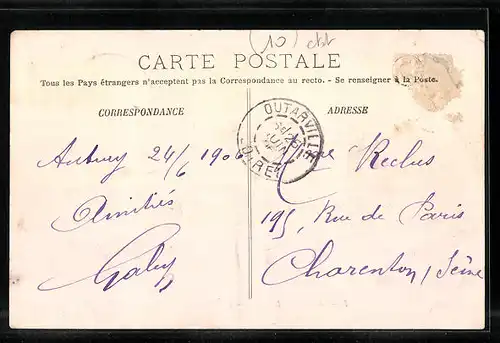 (10)
CARTE POSTALE
Tous les Pays étrangers n'acceptent pas la Correspondance au recto. - Se renseigner à la Poste.
CORRESPONDANCE
ADRESSE
OUTARVILLE
LOIRET
24/6 1906
Reclus
Amitiés
195, Rue de Paris
Gaby
Charenton / Seine